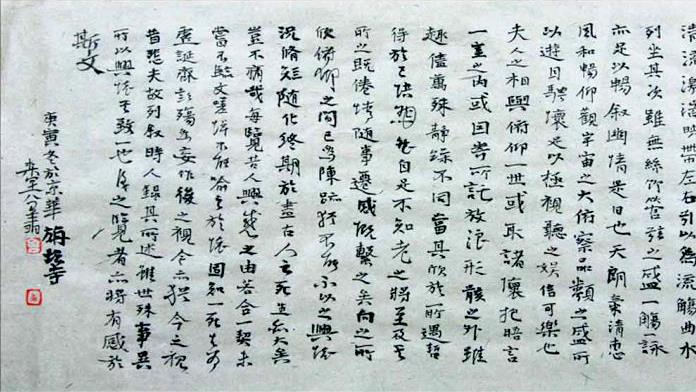 流激湍暎帶左右引以為流觴曲水
列坐其次雖無絲竹管弦之盛一觴一詠
亦足以暢敘幽情是日也天朗氣清惠
風和暢仰觀宇宙之大俯察品類之盛所
以遊目騁懷足以極視聽之娛信可樂也
夫人之相與俯仰一世或取諸懷抱晤言
一室之內或因寄所託放浪形骸之外雖
趣舍萬殊靜躁不同當其欣於所遇暫
得於己快然自足不知老之將至及其
所之既倦情隨事遷感慨繫之矣向之所
欣俛仰之間已為陳跡猶不能不以之興懷
況脩短隨化終期於盡古人云死生亦大矣
豈不痛哉每覽昔人興感之由若合一契未
嘗不臨文嗟悼不能喻之於懷固知一死生為
虛誕齊彭殤為妄作後之視今亦猶今之視
昔悲夫故列敘時人錄其所述雖世殊事異
所以興懷其致一也後之覽者亦將有感於
斯文
庚寅冬於京華旃檀寺